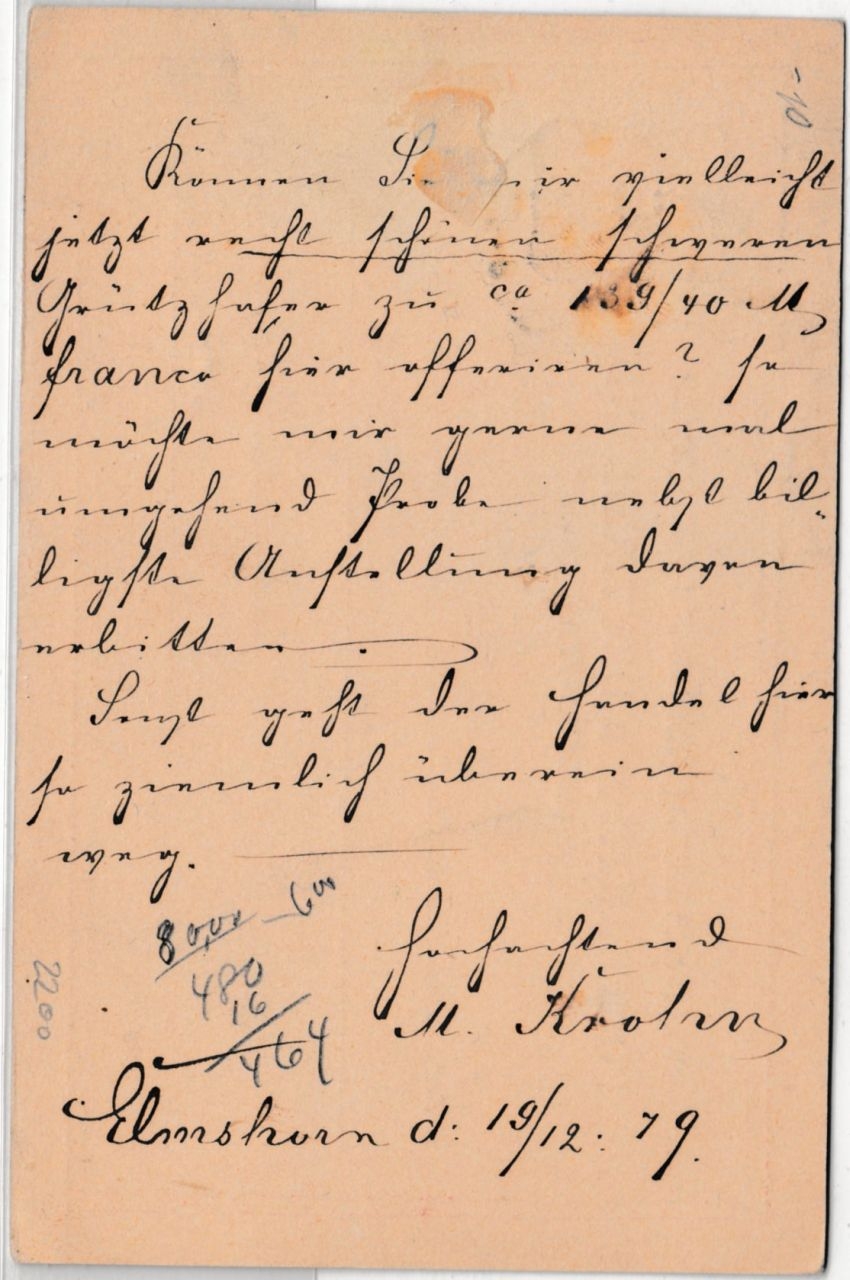 -10
Können Sie mir vielleicht
jetzt recht schönen schweren
Grützhafer zu ca 139/40 M
franco hier offeriren? so
möchte mir gerne mal
umgehend Probe nebst bil-
ligste Anstellung davon
erbitten.
Sonst geht der Handel hier
so ziemlich überein
weg.
80,00 - 600
480
16
464
2200
Hochachtend
M. Krohn
Elmshorn d: 19/12. 79.